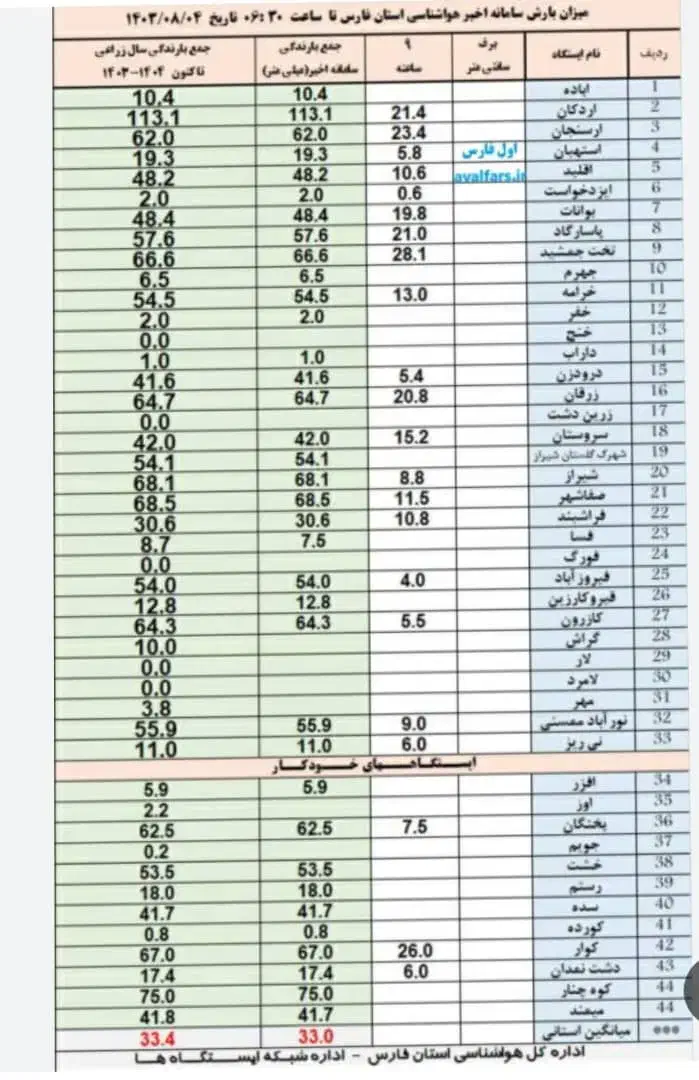 میزان بارش سامانه اخیر هواشناسی استان فارس تا ساعت ۰۶:۳۰ تاریخ ۱۴۰۳/۰۸/۰۴
ردیف نام ایستگاه برف سانتی متر ۹ ساعته جمع بارندگی سامانه اخیر(میلی متر) جمع بارندگی سال زراعی تاکنون ۱۴۰۴-۱۴۰۳
1 اباده 10.4 10.4
2 اردکان 21.4 113.1 113.1
3 ارسنجان 23.4 62.0 62.0
4 استهبان اول فارس 5.8 19.3 19.3
5 اقلید avalfars.ir 10.6 48.2 48.2
6 ایزدخواست 0.6 2.0 2.0
7 بوانات 19.8 48.4 48.4
8 پاسارگاد 21.0 57.6 57.6
9 تخت جمشید 28.1 66.6 66.6
10 جهرم 6.5 6.5
11 خرامه 13.0 54.5 54.5
12 خفر 2.0 2.0
13 خنج 0.0
14 داراب 1.0 1.0
15 درودزن 5.4 41.6 41.6
16 زرقان 20.8 64.7 64.7
17 زرین دشت 0.0
18 سروستان 15.2 42.0 42.0
19 شهرک گلستان شیراز 54.1 54.1
20 شیراز 8.8 68.1 68.1
21 صفاشهر 11.5 68.5 68.5
22 فراشبند 10.8 30.6 30.6
23 فسا 7.5 8.7
24 فورگ 0.0
25 فیروز آباد 4.0 54.0 54.0
26 قیروکارزین 12.8 12.8
27 کازرون 5.5 64.3 64.3
28 گراش 10.0
29 لار 0.0
30 لامرد 0.0
31 مهر 3.8
32 نور آباد ممسنی 9.0 55.9 55.9
33 نی ریز 6.0 11.0 11.0
ایستگاههای خودکار
34 افزر 5.9 5.9
35 اوز 2.2
36 بختگان 7.5 62.5 62.5
37 جویم 0.2
38 خشت 53.5 53.5
39 رستم 18.0 18.0
40 سده 41.7 41.7
41 کورده 0.8 0.8
42 کوار 26.0 67.0 67.0
43 دشت نمدان 6.0 17.4 17.4
44 کوه چنار 75.0 75.0
44 میمند 41.7 41.8
*** میانگین استانی 33.0 33.4
اداره کل هواشناسی استان فارس - اداره شبکه ایستگاه ها